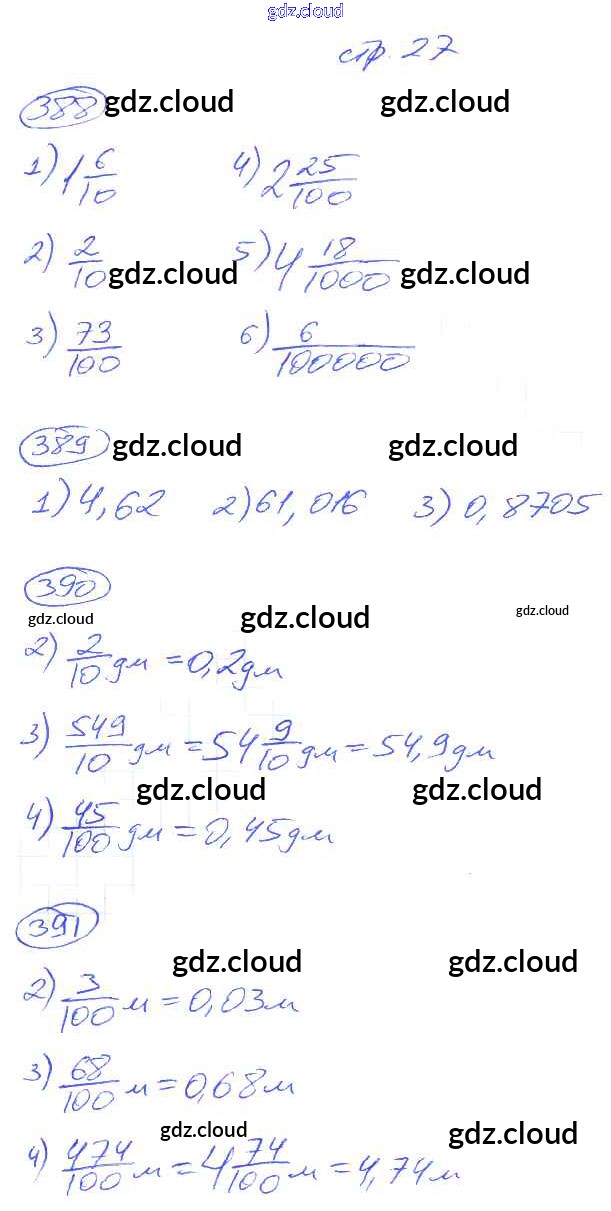 gdz.cloud
стр. 27
388 gdz.cloud gdz.cloud
1) 1 6/10 4) 2 25/100
2) 2/10 gdz.cloud 5) 4 18/1000 gdz.cloud
3) 73/100 6) 6/100000
389 gdz.cloud gdz.cloud
1) 4,62 2) 61,016 3) 0,8705
390
gdz.cloud gdz.cloud gdz.cloud
2) 2/10 дм = 0,2 дм
3) 549/10 дм = 54 9/10 дм = 54,9 дм
gdz.cloud gdz.cloud
4) 45/100 дм = 0,45 дм
391
gdz.cloud gdz.cloud
2) 3/100 м = 0,03 м
3) 68/100 м = 0,68 м
gdz.cloud gdz.cloud
4) 474/100 м = 4 74/100 м = 4,74 м